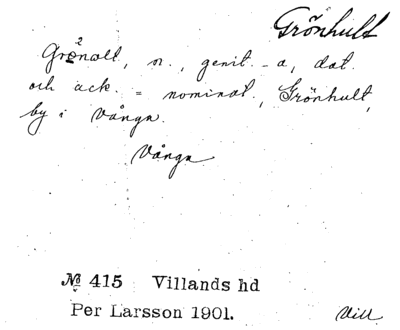 Grönhult
n., genit. -a, dat.
och ack. = nominat., Grönhult,
by i Vånga.
Vånga
№ 415 Villands hd
Per Larsson 1901.
Vill